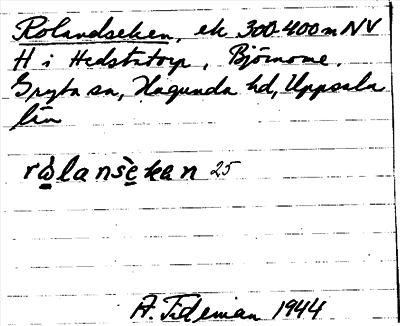 Rolandseken, ek 300-400 m NV
H i Hedstatorp, Björnome,
Gryta sn, Hagunda hd, Uppsala
län
rò̱lansè̱kan 25
A. Tideman 1944